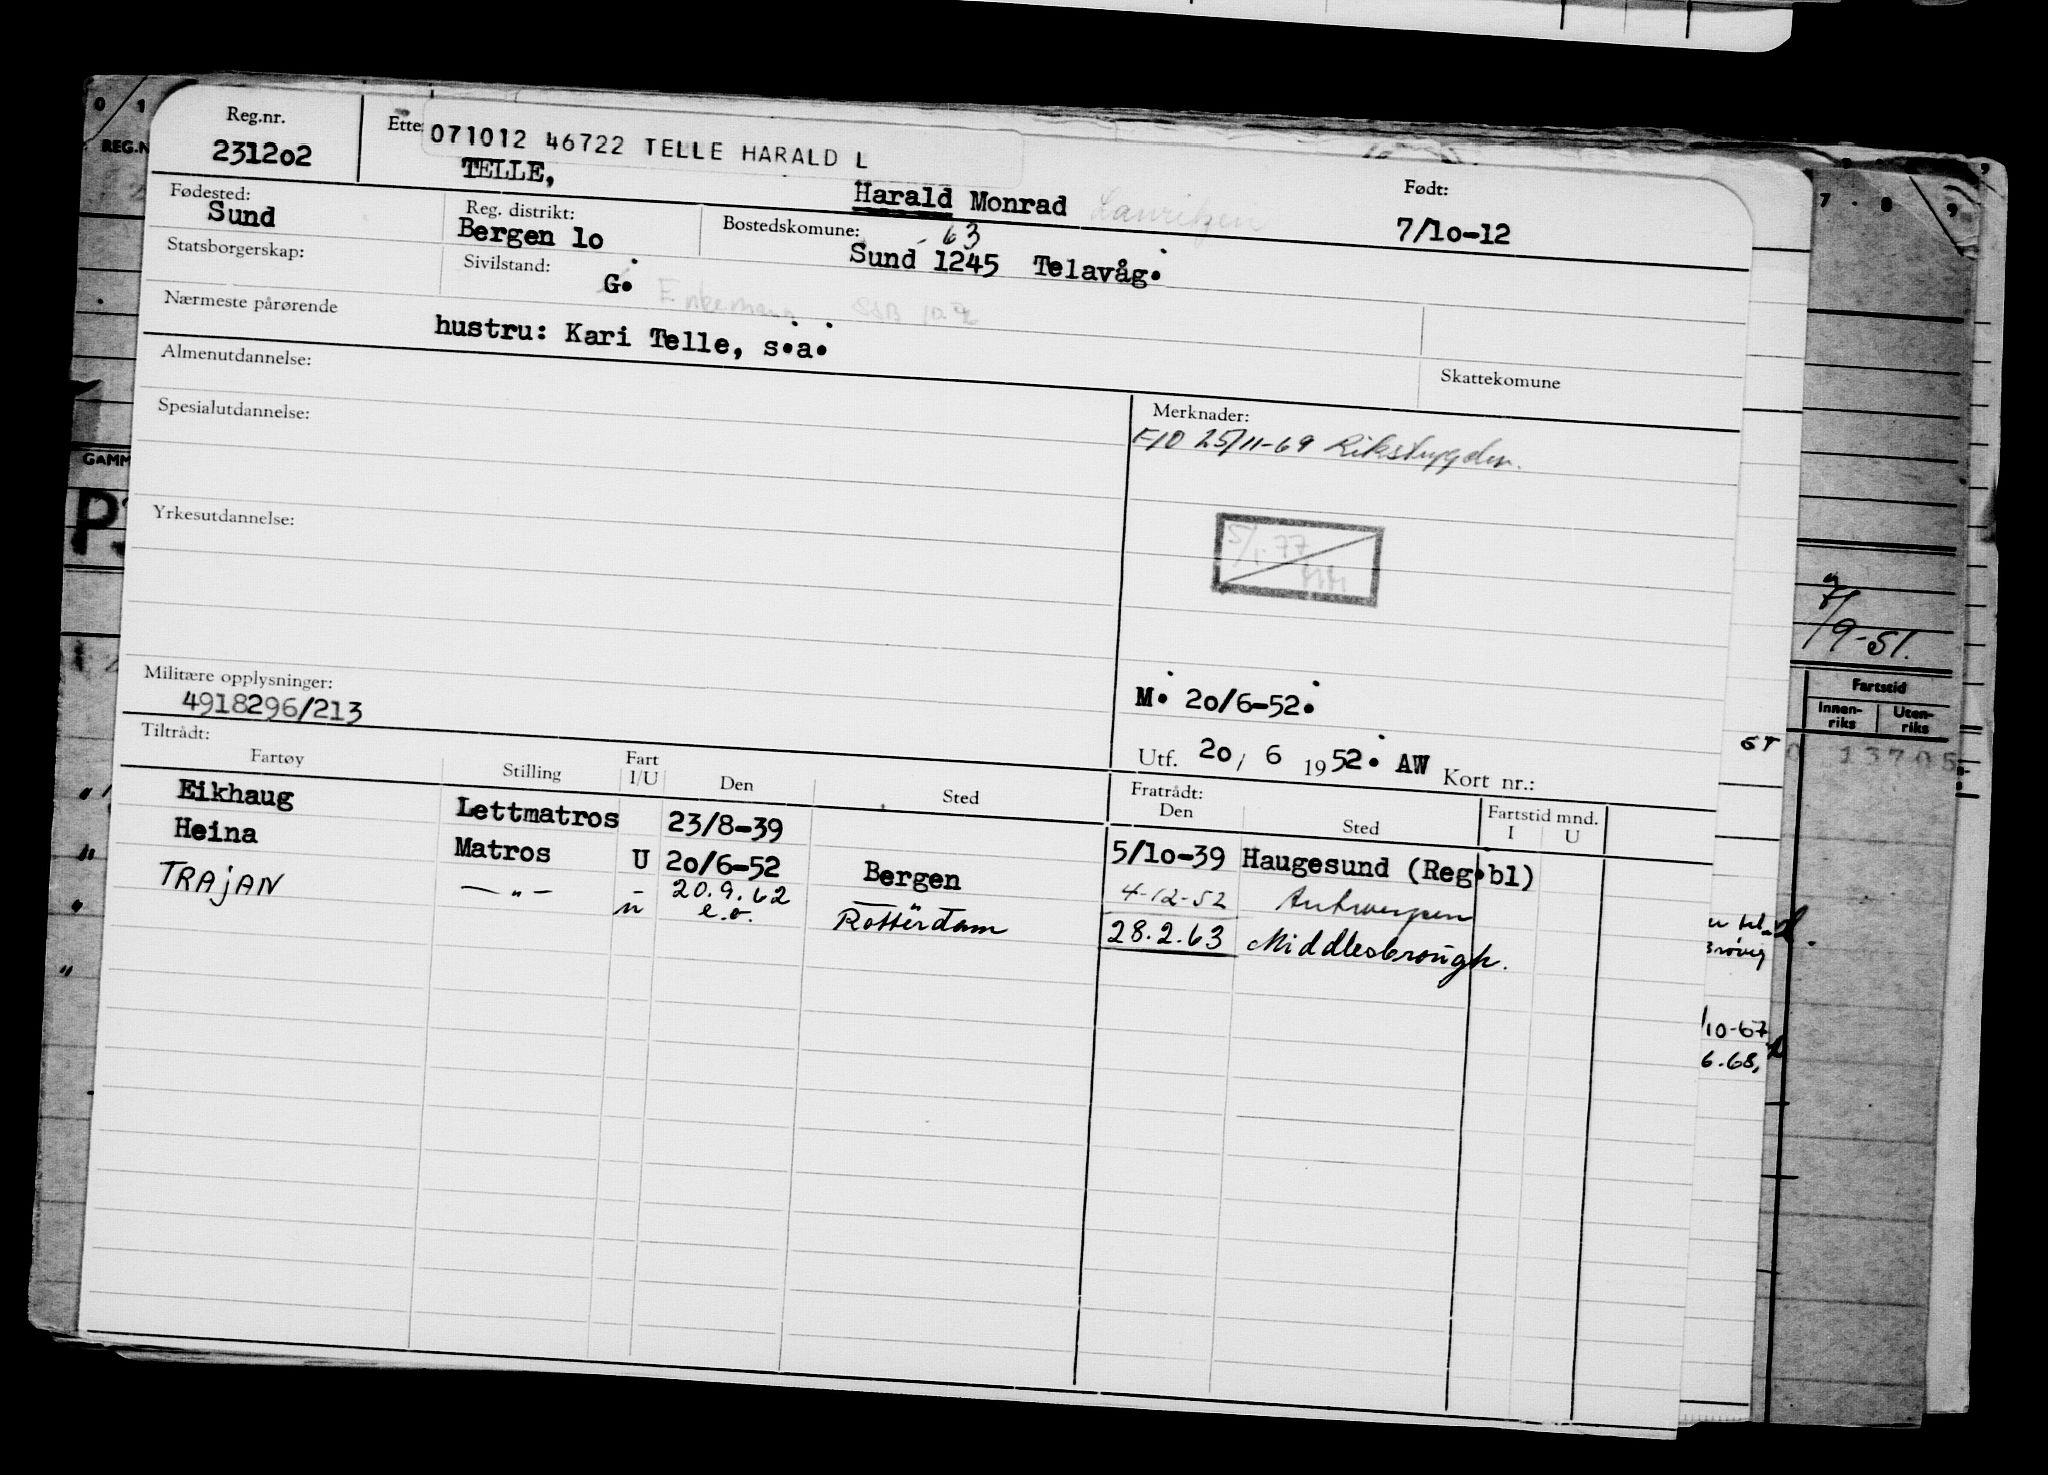 Reg.nr.
231202
071012 46722 TELLE HARALD L
TELLE,
Harald Monrad Lauritzen
Født:
7/10-12
Fødested:
Sund
Reg. distrikt:
Bergen 10
Bostedskomune:
63
Sund 1245 Telavåg.
Statsborgerskap:
Sivilstand:
G.
Enkemann
Nærmeste pårørende
hustru: Kari Telle, s.a.
Skattekomune
Almenutdannelse:
Spesialutdannelse:
Merknader:
F/O 25/11-69 Rikstrygden.
Yrkesutdannelse:
5/1.77
HH
Militære opplysninger:
4918296/213
M. 20/6-52.
Utf. 20/ 6 1952. AW Kort nr.:
Tiltrådt:
Fartøy Stilling Fart I/U Den Sted
Fratrådt: Den Sted Fartstid mnd. I U
Eikhaug Lettmatros 23/8-39 5/10-39 Haugesund (Reg.bl)
Heina Matros U 20/6-52 Bergen 4-12-52 Antwerpen
TRAjAN —"— 20.9.62 e.o. Rotterdam 28.2.63 Middlesbrough.
7/9-51.
Fartstid
Innen-riks Uten-riks
13705
GAMM
REG.N
/10-67
6.68,